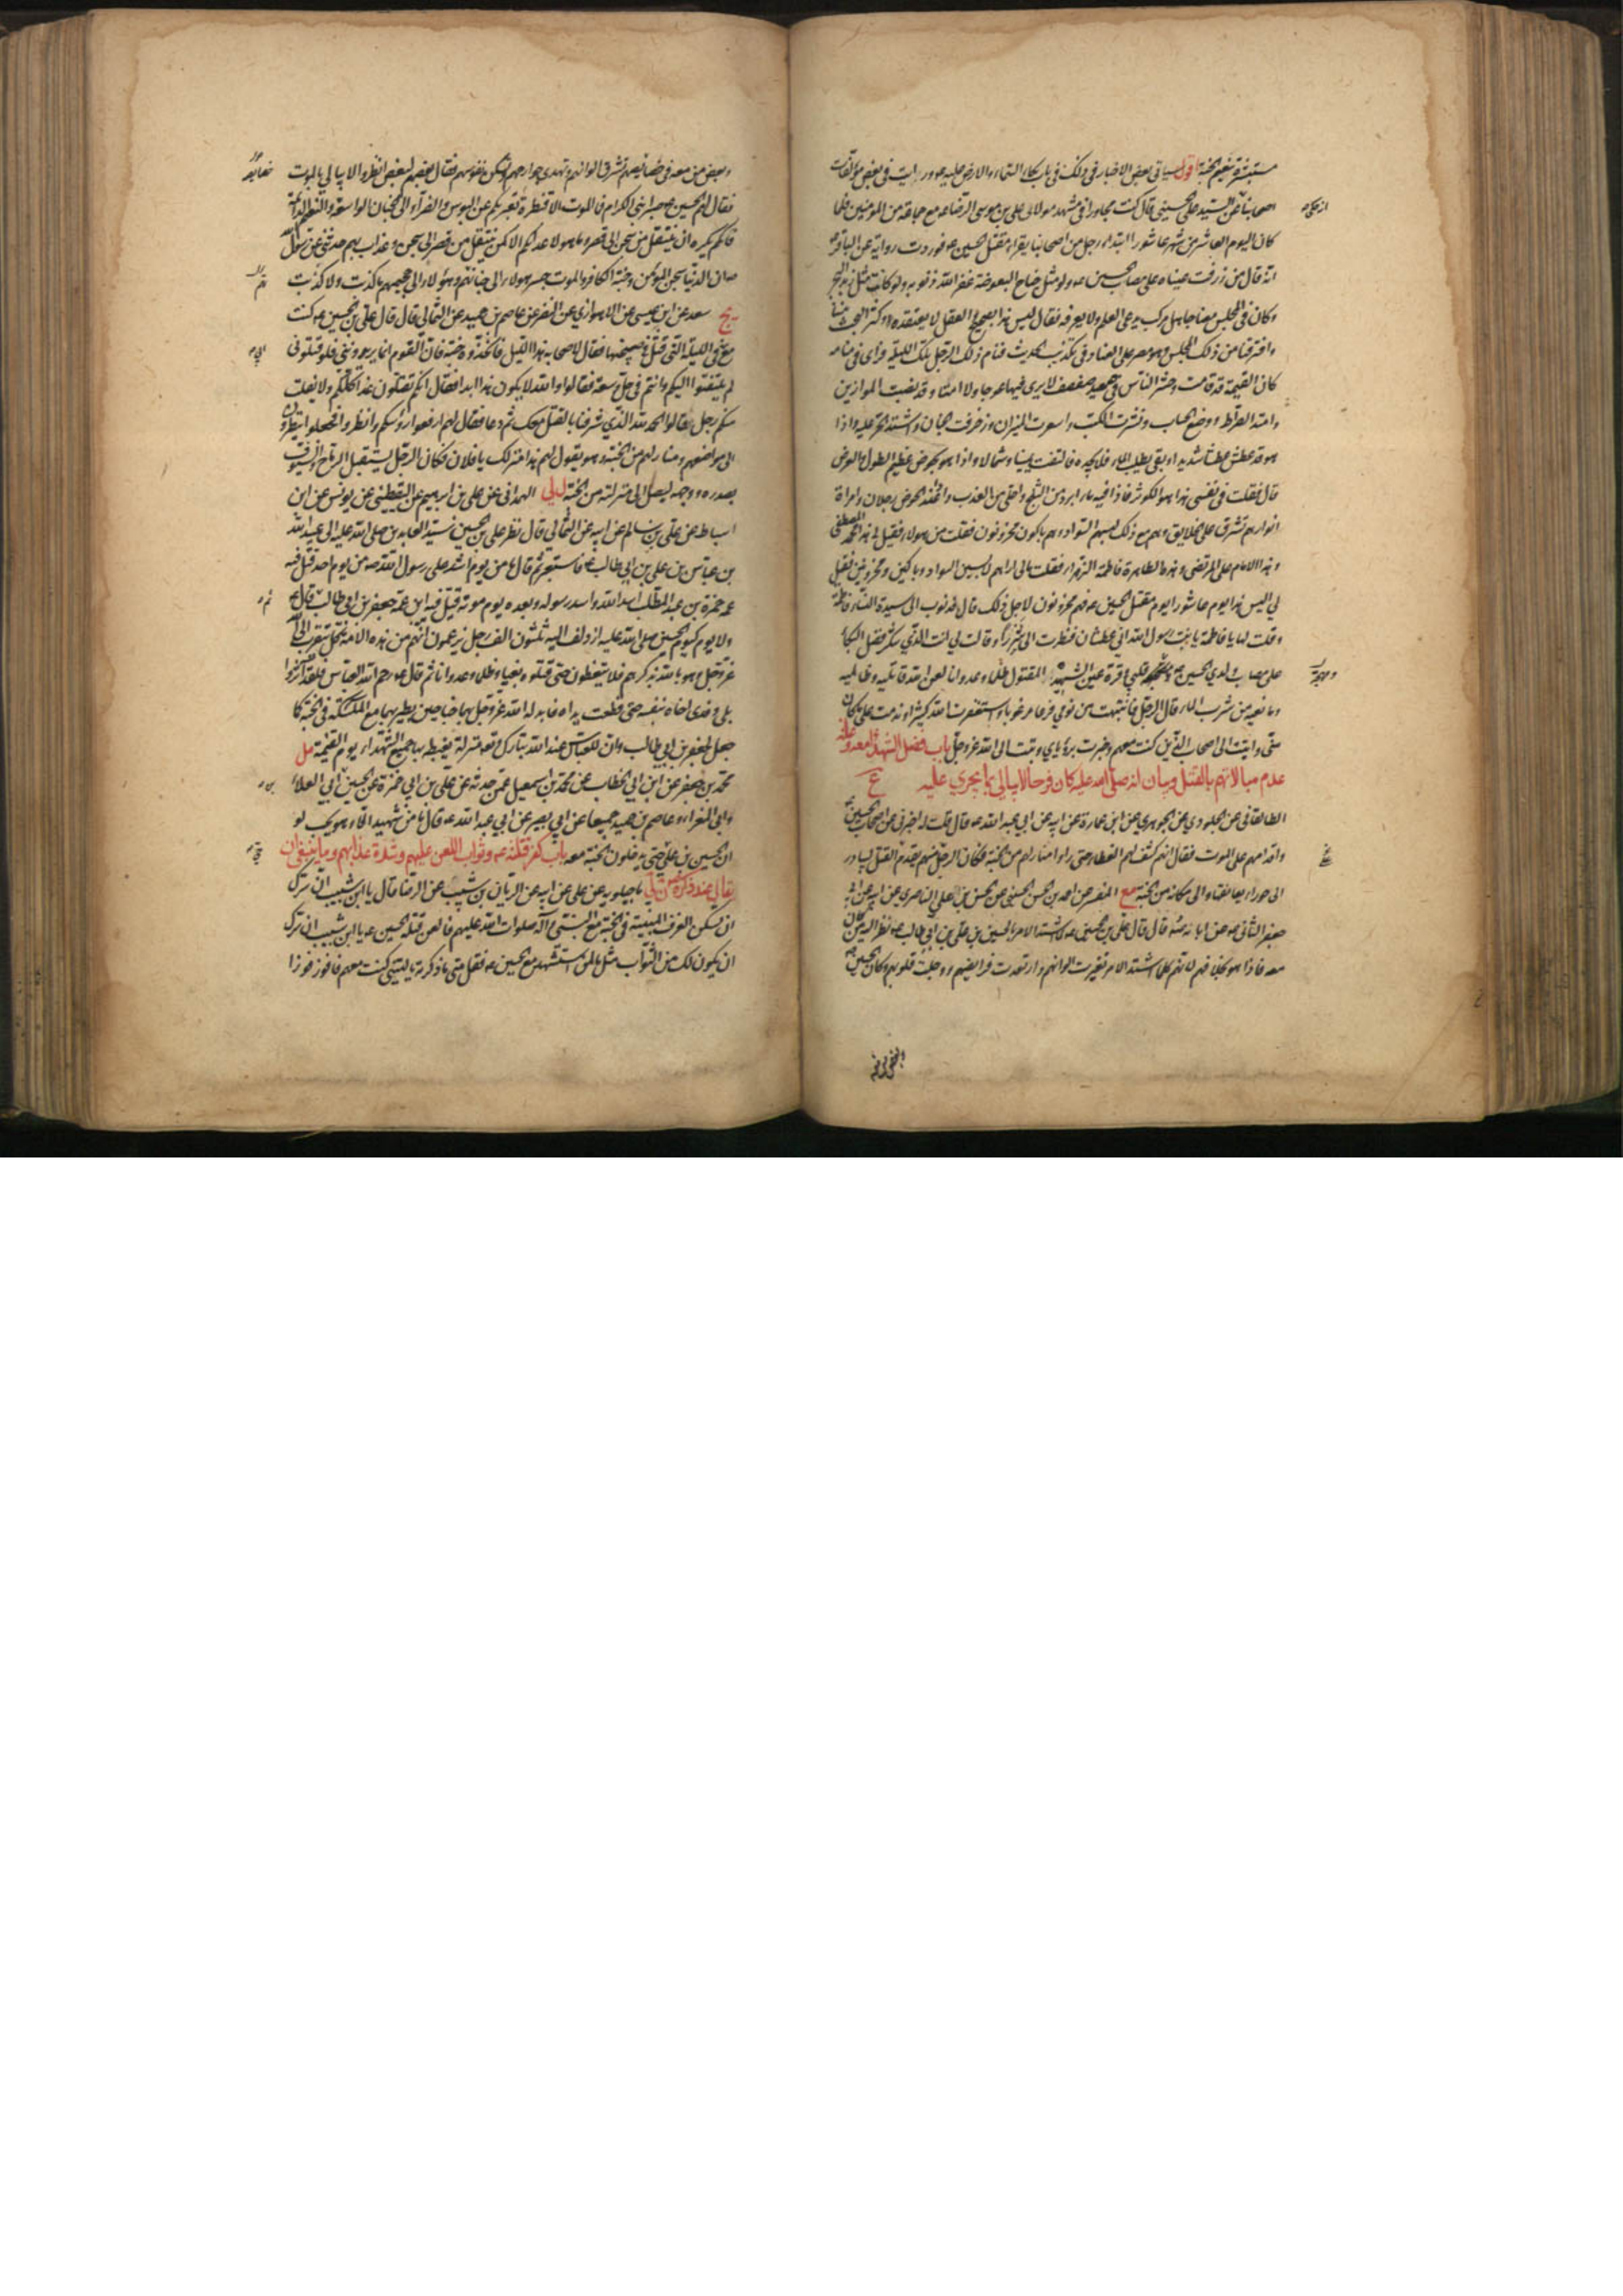 مستبشرة بنعيم الجنة اقول سياتي بعض الاخبار في ذلك في باب بكاء السماء والارض عليه ع ورايت في بعض مؤلفات
اصحابنا عن السيد علي الحسيني قال كنت مجاورا في مشهد مولاي علي بن موسى الرضا ع مع جماعة من المؤمنين فلما
كان اليوم العاشر من شهر عاشورا ابتدا رجل من اصحابنا يقرا مقتل الحسين ع فوردت رواية عن الباقر ع
انه قال من ذرفت عيناه على مصاب الحسين ع ولو مثل جناح البعوضة غفر الله ذنوبه ولو كانت مثل زبد البحر
وكان في المجلس معنا جاهل مركب يدعي العلم ولا يعرفه فقال ليس هذا بصحيح والعقل لا يعتقده وكثر البحث بيننا
وافترقنا من ذلك المجلس وهو مصر على العناد في تكذيب الحديث فنام ذلك الرجل تلك الليلة فراى في منامه
كان القيمة قد قامت وحشر الناس في صعيد صفصف لا يرى فيها عوجا ولا امتا وقد نصبت الموازين
وامتد الصراط ووضع الحساب ونشرت الكتب واسعرت النيران وزخرفت الجنان واشتد الحر عليه واذا
هو قد عطش عطشا شديدا وبقي يطلب الماء فلا يجده فالتفت يمينا وشمالا واذا هو بحوض عظيم الطول والعرض
قال فقلت في نفسي هذا هو الكوثر فاذا فيه ماء ابرد من الثلج واحلى من العذب واذا عند الحوض رجلان وامراة
انوارهم تشرق على الخلايق وهم مع ذلك لبسهم السواد وهم باكون محزونون فقلت من هولاء فقيل لي هذا محمد المصطفى
وهذا الامام علي المرتضى وهذه الطاهرة فاطمة الزهراء فقلت مالي اراهم لابسين السواد وباكين ومحزونين فقيل
لي اليس هذا يوم عاشورا يوم مقتل الحسين ع فهم محزونون لاجل ذلك قال فدنوت الى سيدة النساء فاطمة
وقلت لها يا فاطمة يا بنت رسول الله اني عطشان فنظرت الي شزرا وقالت لي انت الذي تنكر فضل البكاء
على مصاب ولدي الحسين ومهجة قلبي وقرة عيني الشهيد المقتول ظلما وعدوانا لعن الله قاتليه وظالميه
ومانعيه من شرب الماء قال الرجل فانتبهت من نومي فزعا مرعوبا واستغفرت الله كثيرا وندمت على ما كان
مني واتيت الى اصحابي الذين كنت معهم وخبرت برؤياي وتبت الى الله عز وجل باب فضل الشهداء معه وعلة
عدم مبالاتهم بالقتل وبيان انه صلى الله عليه كان فرحا لا يبالي بما يجري عليه ع
الطالقاني عن الجلودي عن الجوهري عن ابن عمارة عن ابيه عن ابي عبد الله ع قال قلت له اخبرني عن اصحاب الحسين
واقدامهم على الموت فقال انهم كشف لهم الغطاء حتى راوا منازلهم من الجنة فكان الرجل منهم يقدم على القتل ليبادر
الى حوراء يعانقها والى مكانه من الجنة مع المفسر عن احمد بن الحسن الحسيني عن الحسن بن علي الناصري عن ابيه عن ابي
جعفر الثاني ع عن آبائه ع قال قال علي بن الحسين ع لما اشتد الامر بالحسين بن علي بن ابي طالب ع نظر اليه من كان
معه فاذا هو بخلافهم لانهم كلما اشتد الامر تغيرت الوانهم وارتعدت فرايصهم ووجلت قلوبهم وكان الحسين
وبعض من معه من خصايصهم تشرق الوانهم وتهدي جوارحهم وتسكن نفوسهم فقال بعضهم لبعض انظروا لا يبالي بالموت
فقال لهم الحسين ع صبرا بني الكرام فما الموت الا قنطرة تعبر بكم عن البؤس والضراء الى الجنان الواسعة والنعيم الدائمة
فايكم يكره ان ينتقل من سجن الى قصر وما هو لاعدائكم الا كمن ينتقل من قصر الى سجن وعذاب ان ابي حدثني عن رسول الله
ص ان الدنيا سجن المؤمن وجنة الكافر والموت جسر هولاء الى جنانهم وهؤلاء الى جحيمهم ما كذبت ولا كذبت
يج سعد عن ابن عيسى عن الاهوازي عن النضر عن عاصم بن حميد عن الثمالي قال قال علي بن الحسين ع كنت
مع ابي في الليلة التي قتل في صبيحتها فقال لاصحابه هذا الليل فاتخذوه جنة فان القوم انما يريدونني فلو قتلوني
لم يلتفتوا اليكم وانتم في حل وسعة فقالوا والله لا يكون هذا ابدا فقال انكم تقتلون غدا كلكم ولا يفلت
منكم رجل قالوا الحمد لله الذي شرفنا بالقتل معك ثم دعا فقال لهم ارفعوا رؤسكم وانظروا فجعلوا ينظرون
الى مواضعهم ومنازلهم من الجنة وهو يقول لهم هذا منزلك يا فلان فكان الرجل يستقبل الرماح والسيوف
بصدره ووجهه ليصل الى منزلته من الجنة لي الهمداني عن علي بن ابراهيم عن اليقطيني عن يونس عن ابن
اسباط عن علي بن سالم عن ابيه عن الثمالي قال نظر علي بن الحسين سيد العابدين صلى الله عليه الى عبيد الله
بن عباس بن علي بن ابي طالب ع فاستعبر ثم قال ما من يوم اشد على رسول الله ص من يوم احد قتل فيه
عمه حمزة بن عبد المطلب اسد الله واسد رسوله وبعده يوم موتة قتل فيه ابن عمه جعفر بن ابي طالب ثم قال ع
ولا يوم كيوم الحسين صلى الله عليه ازدلف اليه ثلثون الف رجل يزعمون انهم من هذه الامة كل يتقرب الى الله
عز وجل بدمه وهو بالله يذكرهم فلا يتعظون حتى قتلوه بغيا وظلما وعدوانا ثم قال ع رحم الله العباس فلقد آثر وا
بلى وفدى اخاه بنفسه حتى قطعت يداه فابدله الله عز وجل بهما جناحين يطير بهما مع الملئكة في الجنة كما
جعل لجعفر بن ابي طالب وان للعباس عند الله تبارك وتعالى منزلة يغبطه بها جميع الشهداء يوم القيمة مل
محمد بن جعفر عن ابن ابي الخطاب عن محمد بن اسمعيل عمن حدثه عن علي بن ابي حمزة عن الحسين بن ابي العلاء
وابي المغراء وعاصم بن حميد جميعا عن ابي بصير عن ابي عبد الله ع قال ما من شهيد الا وهو يحب لو
ان الحسين بن علي حي يدخلون الجنة معه باب كفر قتلته ع وثواب اللعن عليهم وشدة عذابهم وما ينبغي ان
يقال عند ذكره ماجيلويه عن علي عن ابيه عن الريان بن شبيب عن الرضا قال يا ابن شبيب ان سرك
ان تسكن الغرف المبنية في الجنة مع النبي وآله صلوات الله عليهم فالعن قتلة الحسين ع يا ابن شبيب ان سرك
ان يكون لك من الثواب مثل ما لمن استشهد مع الحسين ع فقل متى ما ذكرته يا ليتني كنت معهم فافوز فوزا